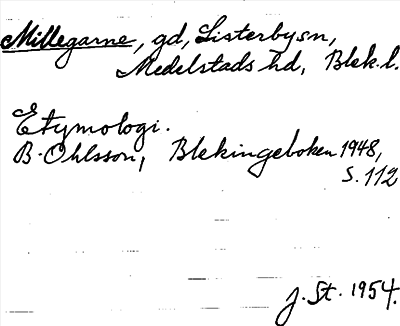 Millegarne, gd, Listerby sn,
Medelstads hd, Blek. l.
Etymologi.
B. Ohlsson, Blekingeboken 1948,
S. 112
J. St. 1954.